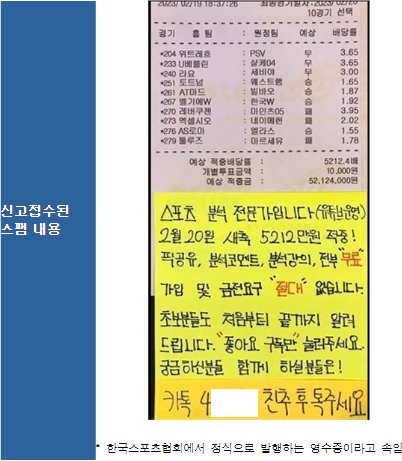 신고접수된
스팸 내용
2023/02/19 18:37:26
10경기 선택
경기 홈 팀 : 원정팀 예상 배당률
*204 위트레흐 : PSV 무 3.65
*233 U베를린 : 샬케04 무 3.65
*240 라요 : 세비야 무 3.00
*251 토트넘 : 웨스트햄 승 1.65
*261 AT마드 : 빌바오 승 1.87
*267 벨기에W : 한국W 승 1.92
*270 레버쿠젠 : 마인츠05 패 3.95
*273 엑셀시오 : 네이메헌 무 2.02
*276 AS로마 : 엘라스 승 1.55
*279 툴루즈 : 마르세유 패 1.78
예상 적중배당률 : 5212.4배
개별투표금액 : 10,000원
예상 적중금 : 52,124,000원
스포츠 분석 전문가입니다
2월 20일 새축 5212만원 적중!
픽공유, 분석코멘트, 분석강의, 전부 "무료"
가입 및 금전요구 "절대" 없습니다.
초보분들도 처음부터 끝까지 알려
드립니다. "좋아요 구독만" 눌러주세요.
궁금하신분들 함께 하실분들은!
카톡 4 친추 후 톡주세요
* 한국스포츠협회에서 정식으로 발행하는 영수증이라고 속임